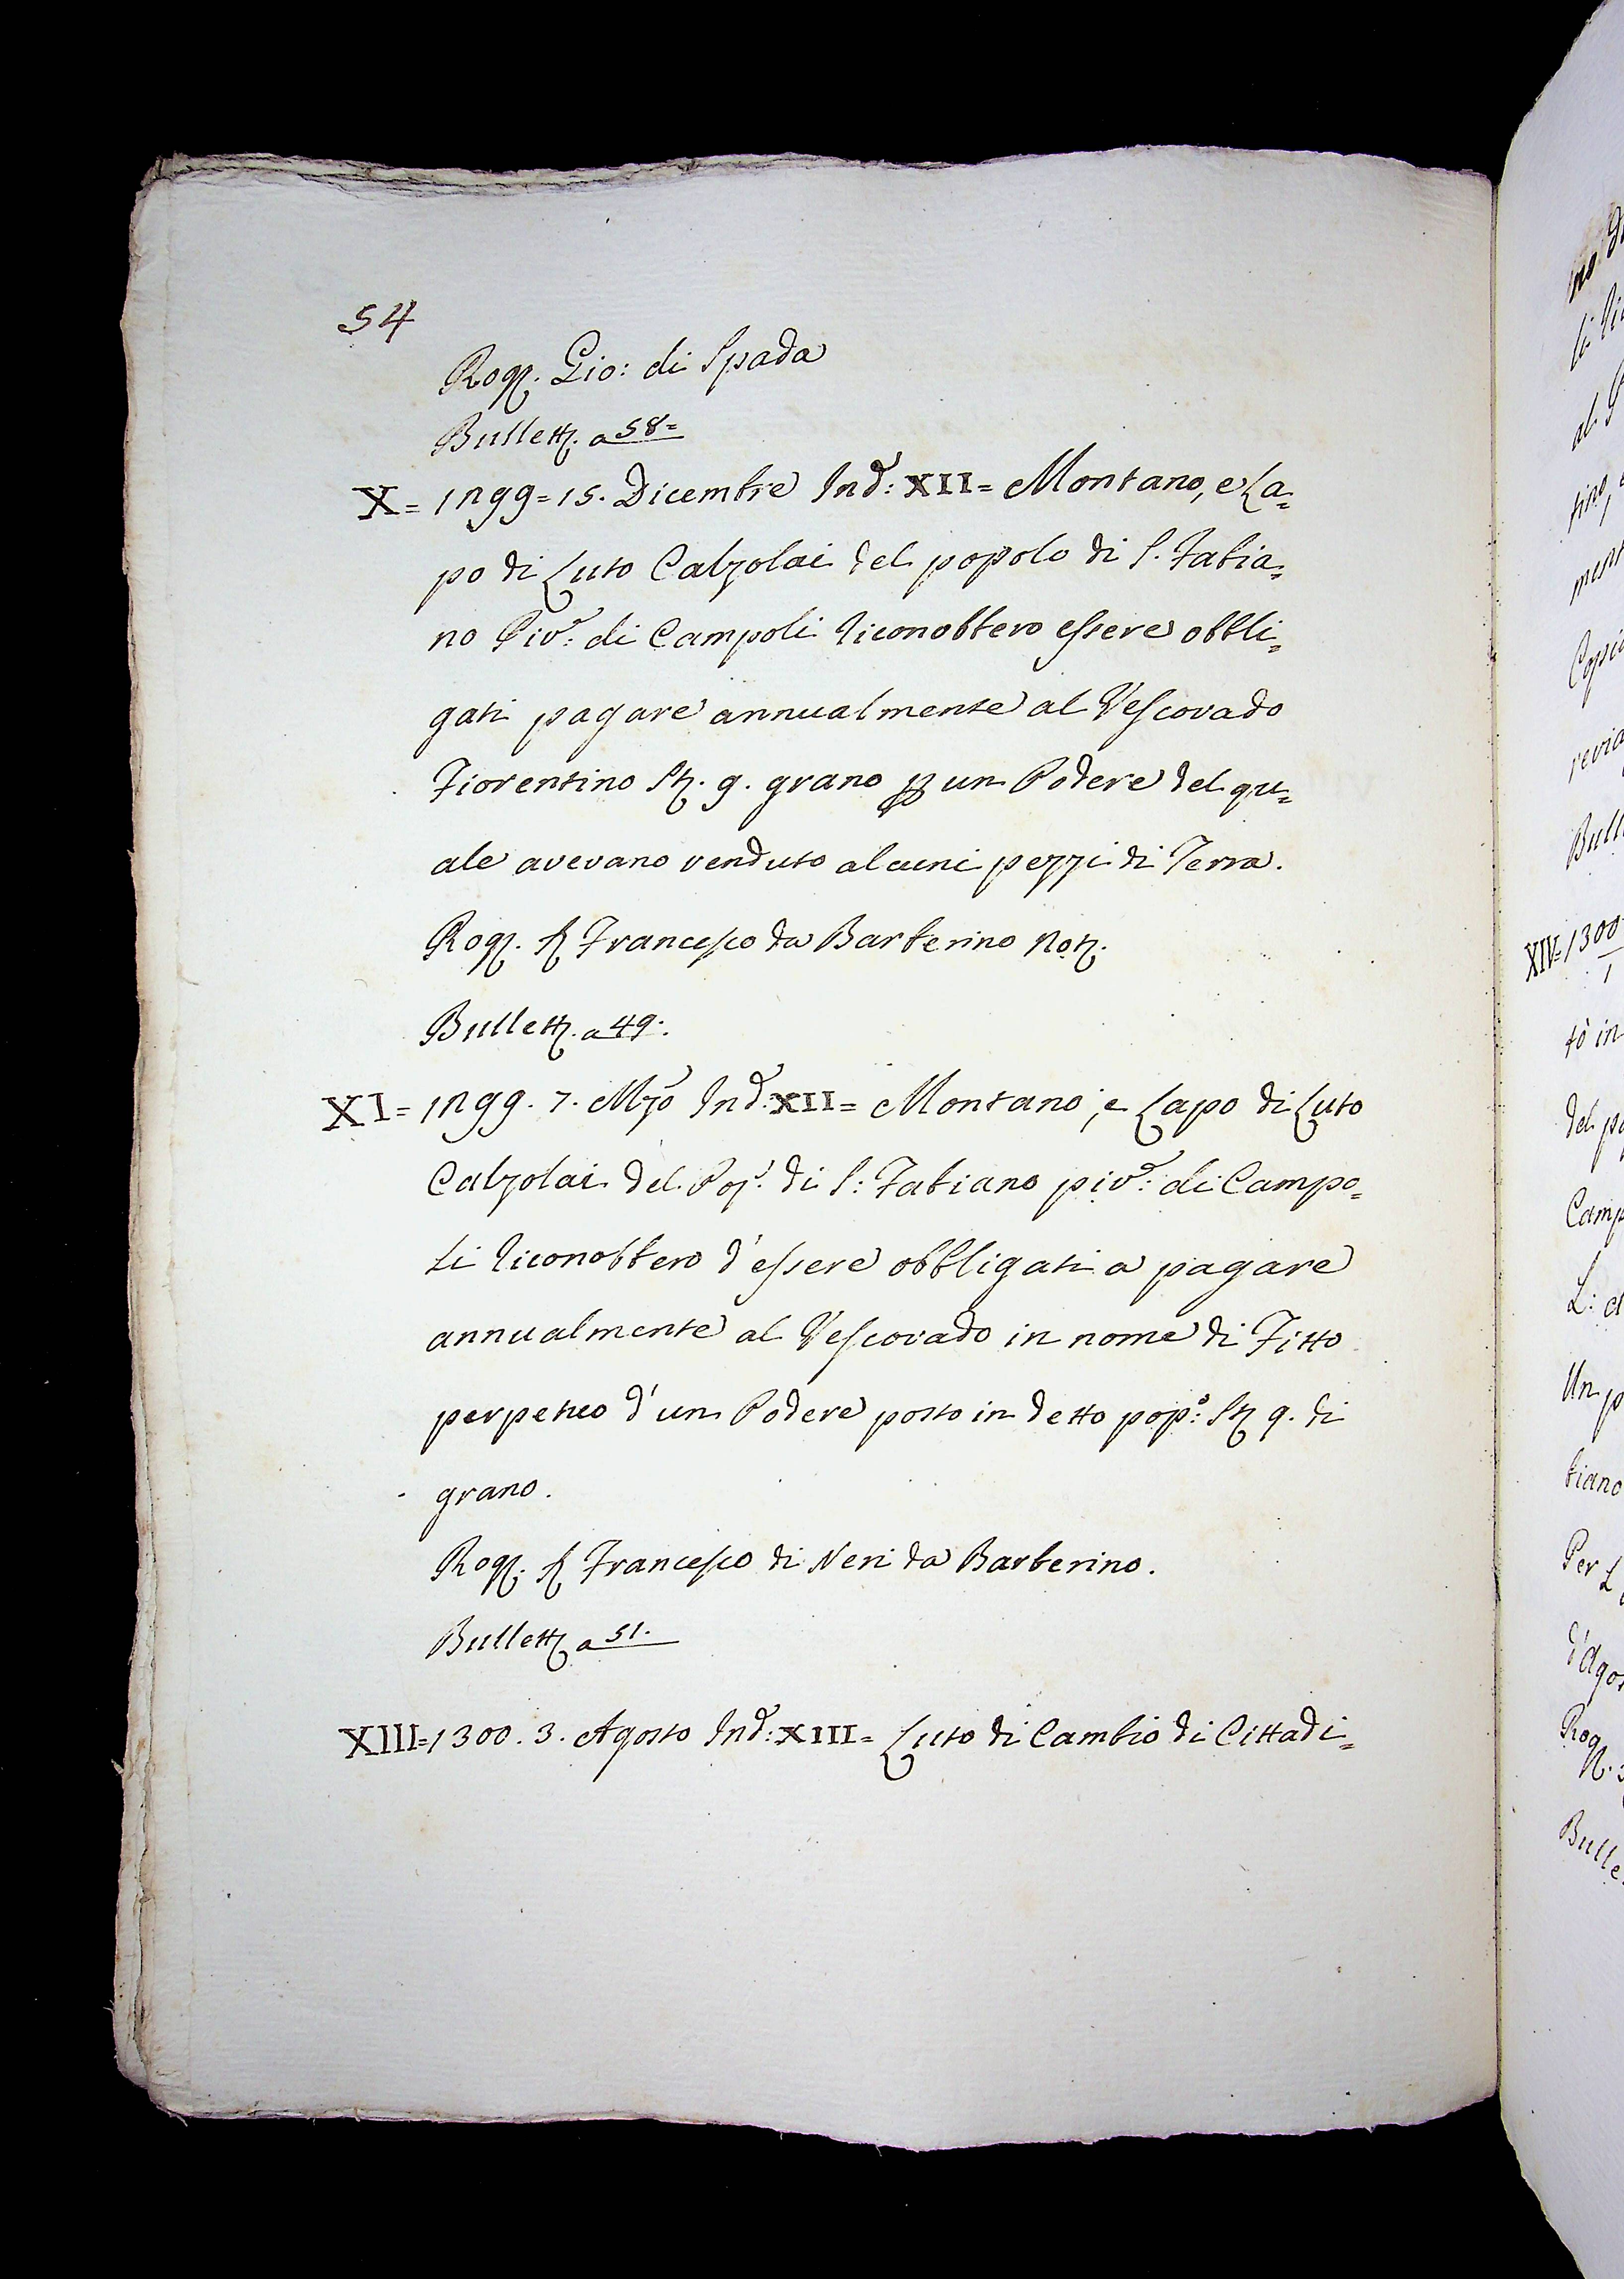 54
Rog. Gio: di Spada
Bullett. a 58=
X= 1299= 15. Dicembre Ind: XII= Montano, e La=
po di Luto Calzolai del popolo di S. Fabia=
no Piv: di Campoli riconobbero essere obbli=
gati pagare annualmente al Vescovado
Fiorentino St. 9. grano p un Podere del qu=
ale avevano venduto alcuni pezzi di Terra.
Rog. S Francesco da Barberino Not.
Bullett. a 49.
XI= 1299. 7. Mzo Ind: XII= Montano, e Lapo di Luto
Calzolai del Pop. di S: Fabiano piv: di Campo=
li riconobbero d'essere obbligati a pagare
annualmente al Vescovado in nome di Fitto
perpetuo d'un Podere posto in detto popo: St 9. di
grano.
Rog. S Francesco di Neri da Barberino.
Bullett a 51.
XIII= 1300. 3. Agosto Ind: XIII= Luto di Cambio di Cittadi=
XIV= 1300